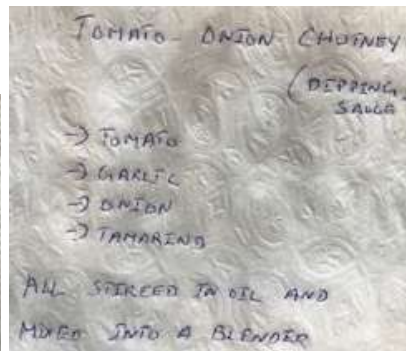 TOMATO - ONION CHUTNEY
(DIPPING
SAUCE
→ TOMATO
→ GARLIC
→ ONION
→ TAMARIND
ALL STIRRED IN OIL AND
MIXED INTO A BLENDER